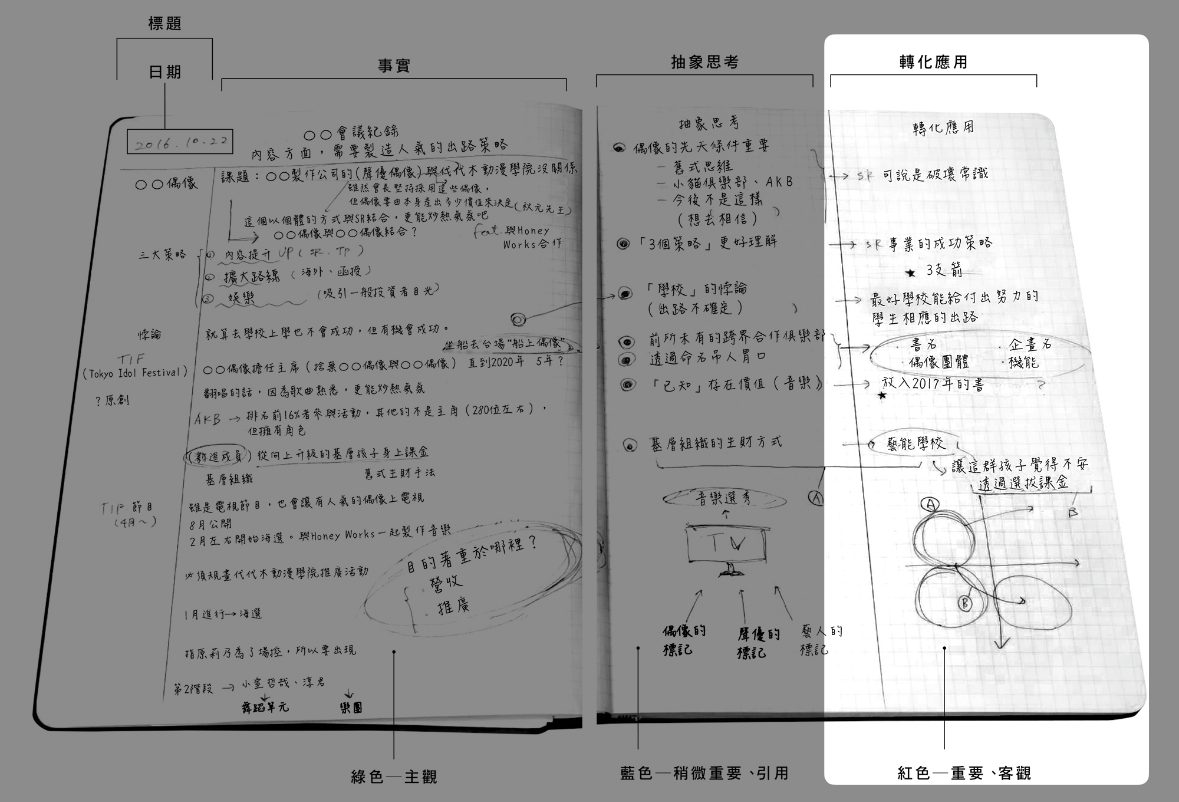 標題
日期
事實
抽象思考
轉化應用
2016.10.22
○○會議紀錄
內容方面，需要製造人氣的出路策略
○○偶像
課題：○○製作公司的(聲優偶像)與代代木動漫學院沒關係
雖然會長堅持採用這些偶像，
但偶像要由本身產出多少價值來決定(秋元先生)
這個以個體的方式與SR結合，更能炒熱氣氛吧
○○偶像與○○偶像結合？
feat. 與Honey
Works合作
三大策略
① 內容提升 UP (SR、TP)
② 擴大路線 (海外、函授)
③ 娛樂 (吸引一般投資者目光)
悖論
就算去學校上學也不會成功，但有機會成功。
坐船去台場“船上偶像”
TIF
(Tokyo Idol Festival)
○○偶像擔任主席(捨棄○○偶像與○○偶像) 直到2020年 5年？
？原創
翻唱的話，因為歌曲熟悉，更能炒熱氣氛
AKB → 排名前16%者參與活動，其他的不是主角(280位左右)，
但擁有角色
(製造成員) 從向上升級的基層孩子身上課金
基層組織
舊式生財手法
TIF 節目
(4月～)
雖是電視節目，也會讓有人氣的偶像上電視
8月公開
2月左右開始海選。與Honey Works一起製作音樂
目的著重於哪裡？
· 營收
· 推廣
必須規畫代代木動漫學院推廣活動
1月進行→海選
指原莉乃為了場控，所以要出現
第2階段 → 小室哲哉、淳君
舞蹈單元
樂團
抽象思考
偶像的先天條件重要
－ 舊式思維
－ 小貓俱樂部、AKB
－ 今後不是這樣
(想去相信)
「3個策略」更好理解
「學校」的悖論
(出路不確定)
前所未有的跨界合作俱樂部
透過命名吊人胃口
「已知」存在價值(音樂)
基層組織的生財方式
音樂選秀
A
TV
偶像的
標記
聲優的
標記
藝人的
標記
轉化應用
→ SR 可說是破壞常識
→ SR 專業的成功策略
★ 3支箭
→ 最好學校能給付出努力的
學生相應的出路
· 書名 · 企畫名
· 偶像團體 · 機能
→ 放入2017年的書 ？
★
→ 藝能學校
讓這群孩子覺得不安
透過選拔課金
A
B
B
綠色─主觀
藍色─稍微重要、引用
紅色─重要、客觀